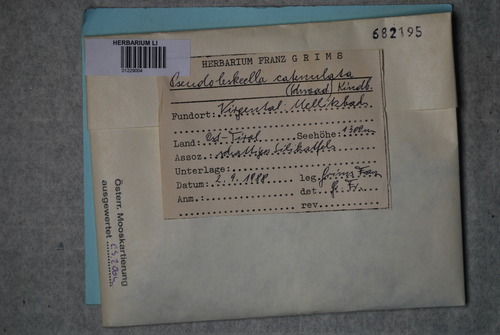 HERBARIUM LI
01229004
682195
HERBARIUM FRANZ GRIMS
Pseudoleskeella catenulata
(Schrad.) Kindb.
Fundort: Virgental:
Land: Ost-Tirol Seehöhe: 1300m
Assoz. schattiger
Unterlage:
Datum: 2.9.1988 leg. Grims Franz
Anm.: det. G. Fr.
rev.
Österr. Mooskartierung
ausgewertet